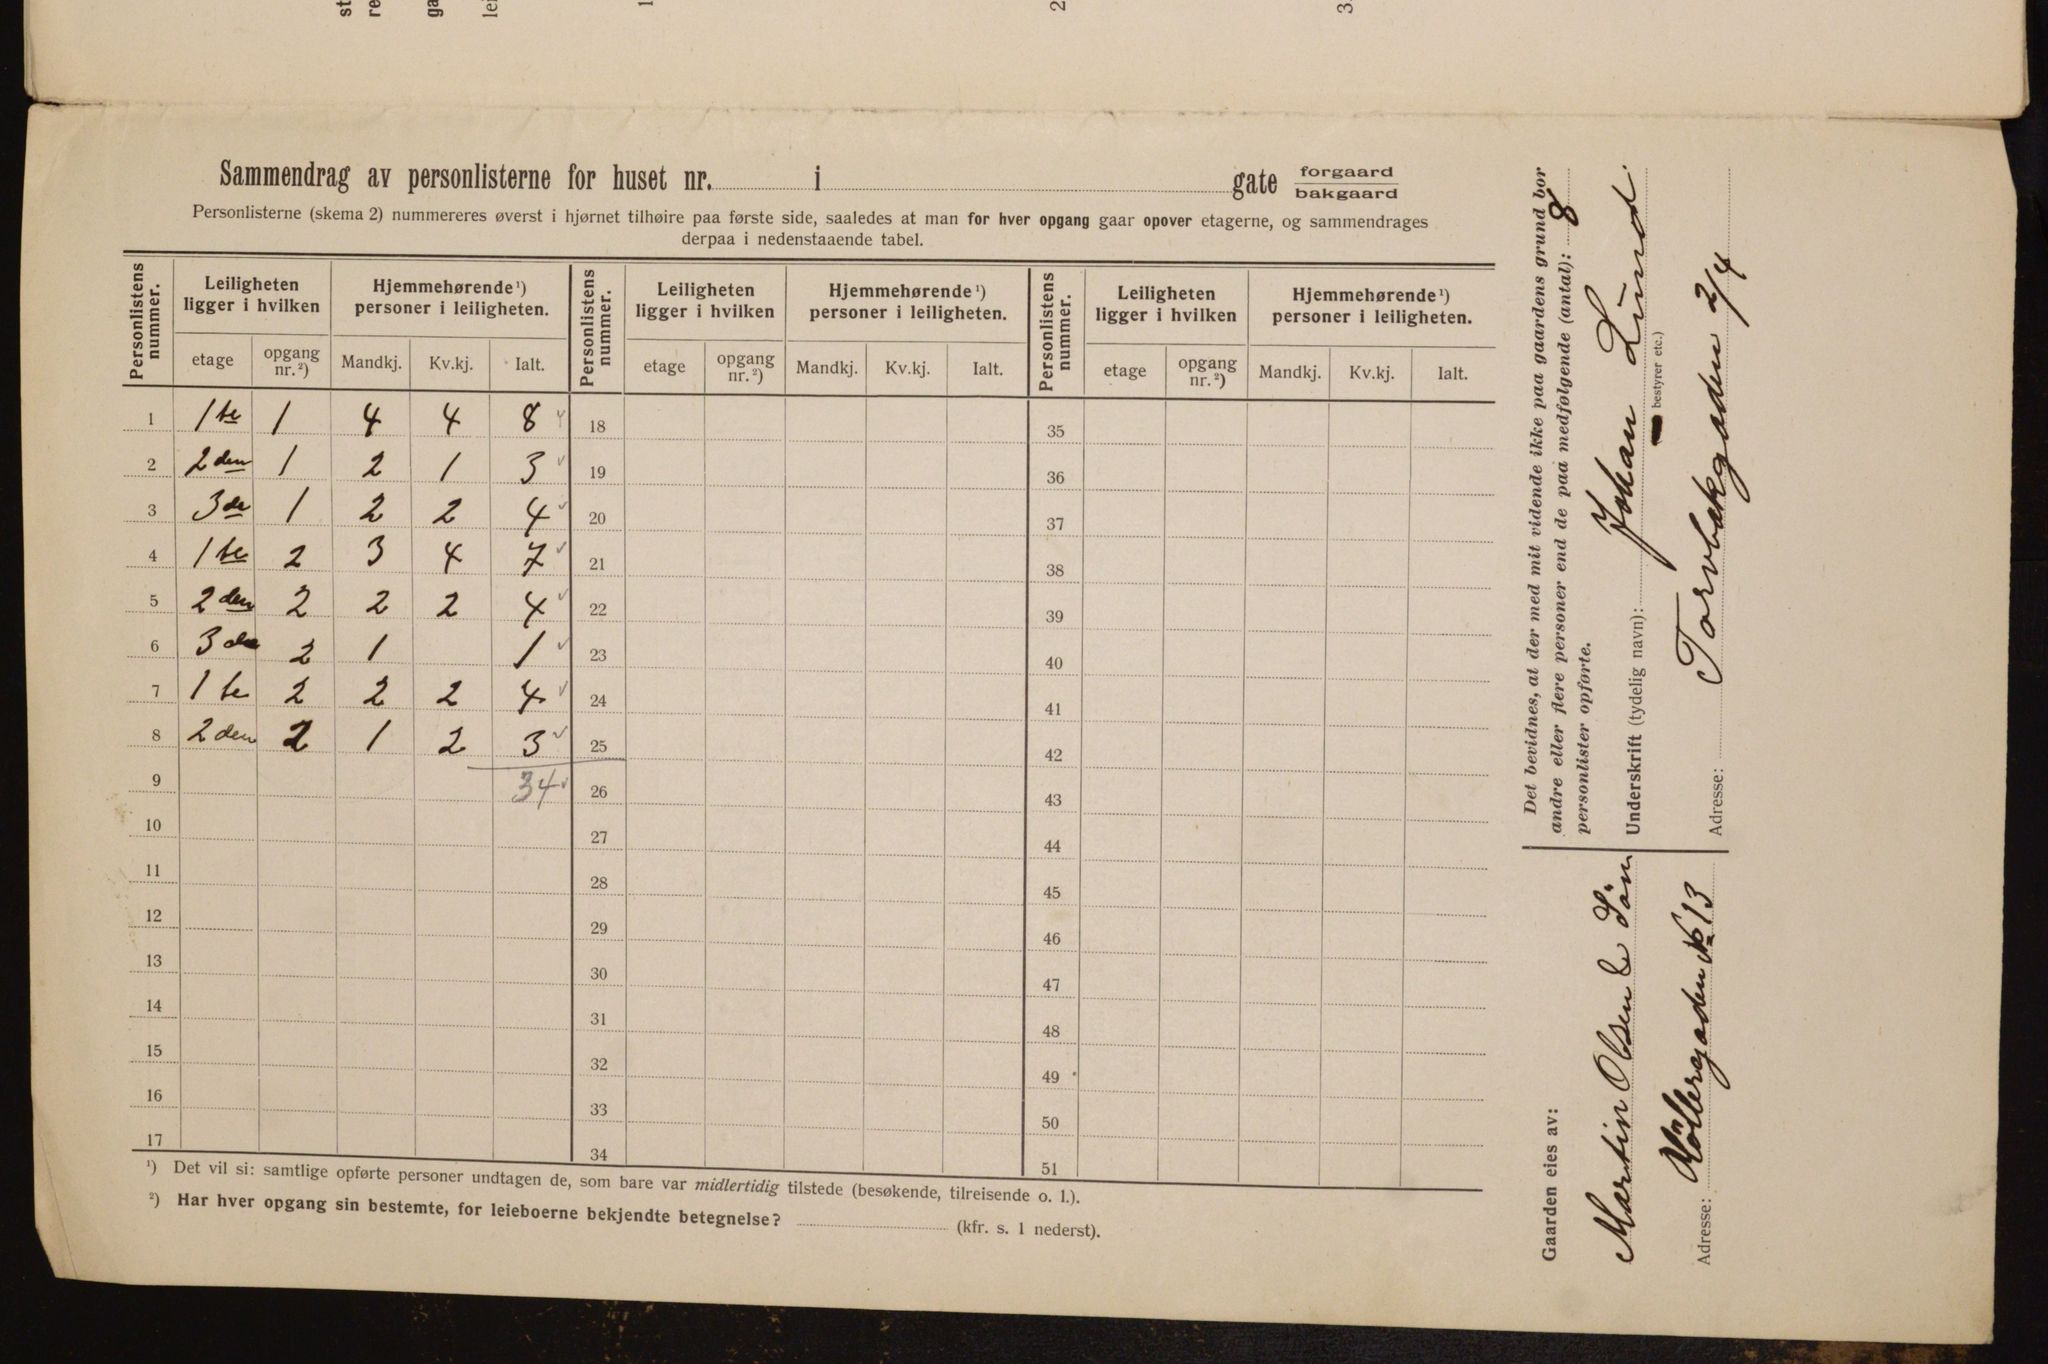 Sammendrag av personlisterne for huset nr. i gate forgaard
bakgaard
Personlisterne (skema 2) nummereres øverst i hjørnet tilhøire paa første side, saaledes at man for hver opgang gaar opover etagerne, og sammendrages
derpaa i nedenstaaende tabel.
Personlistens nummer. Leiligheten ligger i hvilken Hjemmehørende¹) personer i leiligheten. Personlistens nummer. Leiligheten ligger i hvilken Hjemmehørende¹) personer i leiligheten. Personlistens nummer. Leiligheten ligger i hvilken Hjemmehørende¹) personer i leiligheten.
etage opgang nr.²) Mandkj. Kv.kj. Ialt. etage opgang nr.²) Mandkj. Kv.kj. Ialt. etage opgang nr.²) Mandkj. Kv.kj. Ialt.
1 1ste 1 4 4 8 18 35
2 2den 1 2 1 3 19 36
3 3de 1 2 2 4 20 37
4 1ste 2 3 4 7 21 38
5 2den 2 2 2 4 22 39
6 3de 2 1 1 23 40
7 1ste 2 2 2 4 24 41
8 2den 2 1 2 3 25 42
9 34 26 43
10 27 44
11 28 45
12 29 46
13 30 47
14 31 48
15 32 49
16 33 50
17 34 51
¹) Det vil si: samtlige opførte personer undtagen de, som bare var midlertidig tilstede (besøkende, tilreisende o. l.).
²) Har hver opgang sin bestemte, for leieboerne bekjendte betegnelse? (kfr. s. 1 nederst).
Det bevidnes, at der med mit vidende ikke paa gaardens grund bor
andre eller flere personer end de paa medfølgende (antal): 8
personlister opførte.
Underskrift (tydelig navn): Johan Lund.
bestyrer etc.)
Adresse: Torvbakgaden 2/4
Gaarden eies av:
Martin Olsen & Sön
Adresse: Möllergaden № 13